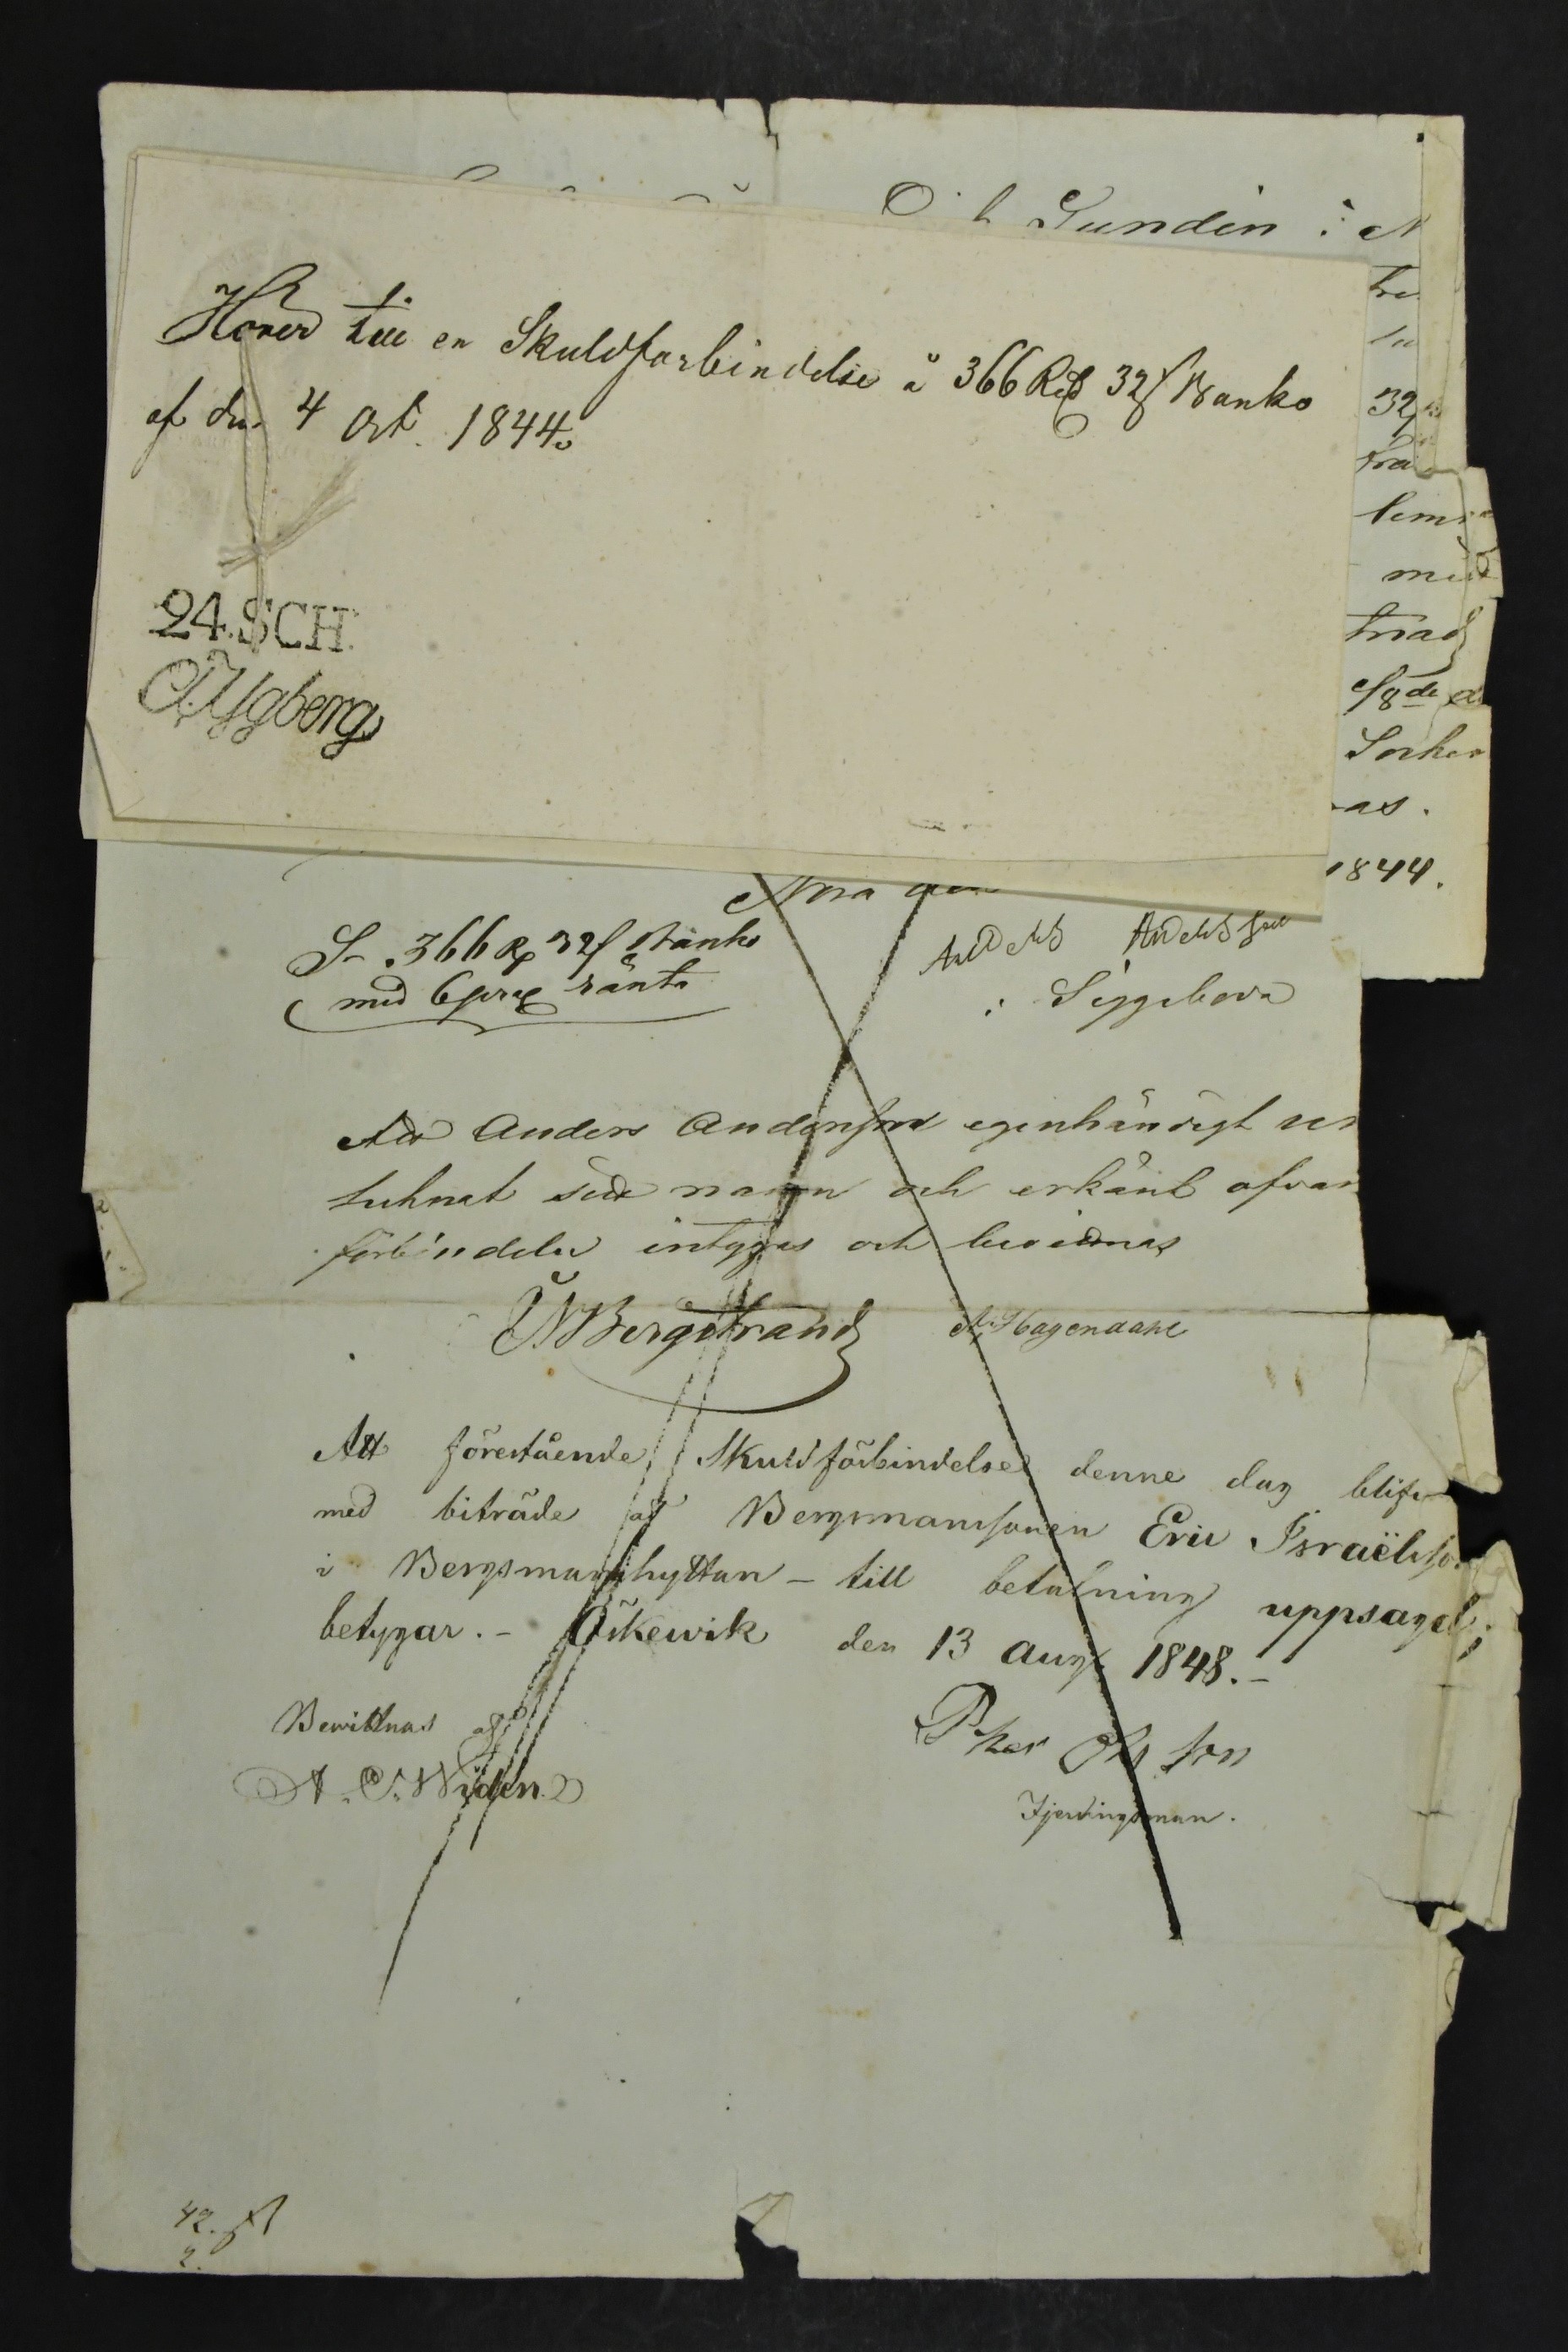 Sundin i N
Hörer till en Skuldförbindelse å 366 Rd 32 s Banko
af den 4 Oct. 1844.
24. SCH.
Ygberg
32 s
med
18de
as.
1844.
Nora den
S:r 366 R 32 s Banko
med 6 proc ränta
Anders Andersson
i Siggeboda
Att Anders Andersson egenhändigt un
tecknat sitt namn och erkänt ofvan
förbindelse intygas och bevittnas
Bergstrand
A. Hagendahl
Att förestående Skuldförbindelse denne dag blifv
med biträde af Bergsmanssonen Eric Israëlsso
i Bergsmanshyttan – till betalning uppsagd;
betygar. – Öskewik den 13 Aug. 1848. –
Bewittnas af
A. C. Widen
Peter Olsson
Fjerdingsman.
42.
2.